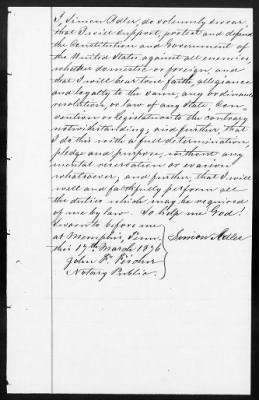 I, Simon Adler, do solemnly swear,
that I will support, protect and defend
the Constitution and Government of
the United States, against all enemies,
whether domestic or foreign, and
that I will bear true faith, allegiance
and loyalty to the same, any ordinance,
resolution, or law of any State, Con-
vention or Legislation to the contrary
notwithstanding; and further, that
I do this with a full determination,
pledge and purpose, without any
mental reservation or evasion
whatsoever; and further, that I will
well and faithfully perform all
the duties which may be required
of me by law. So help me God!
Sworn to before me
at Memphis, Tenn. Simon Adler
this 17th March 1876
John F.
Notary Public.